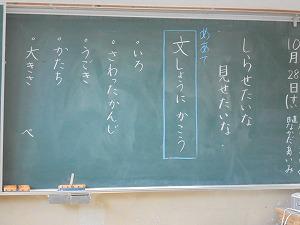 10月28日(
しらせたいな
見せたいな。
めあて
文しょうにかこう
・いろ
・さわったかんじ
・うごき
・かたち
・大きさ